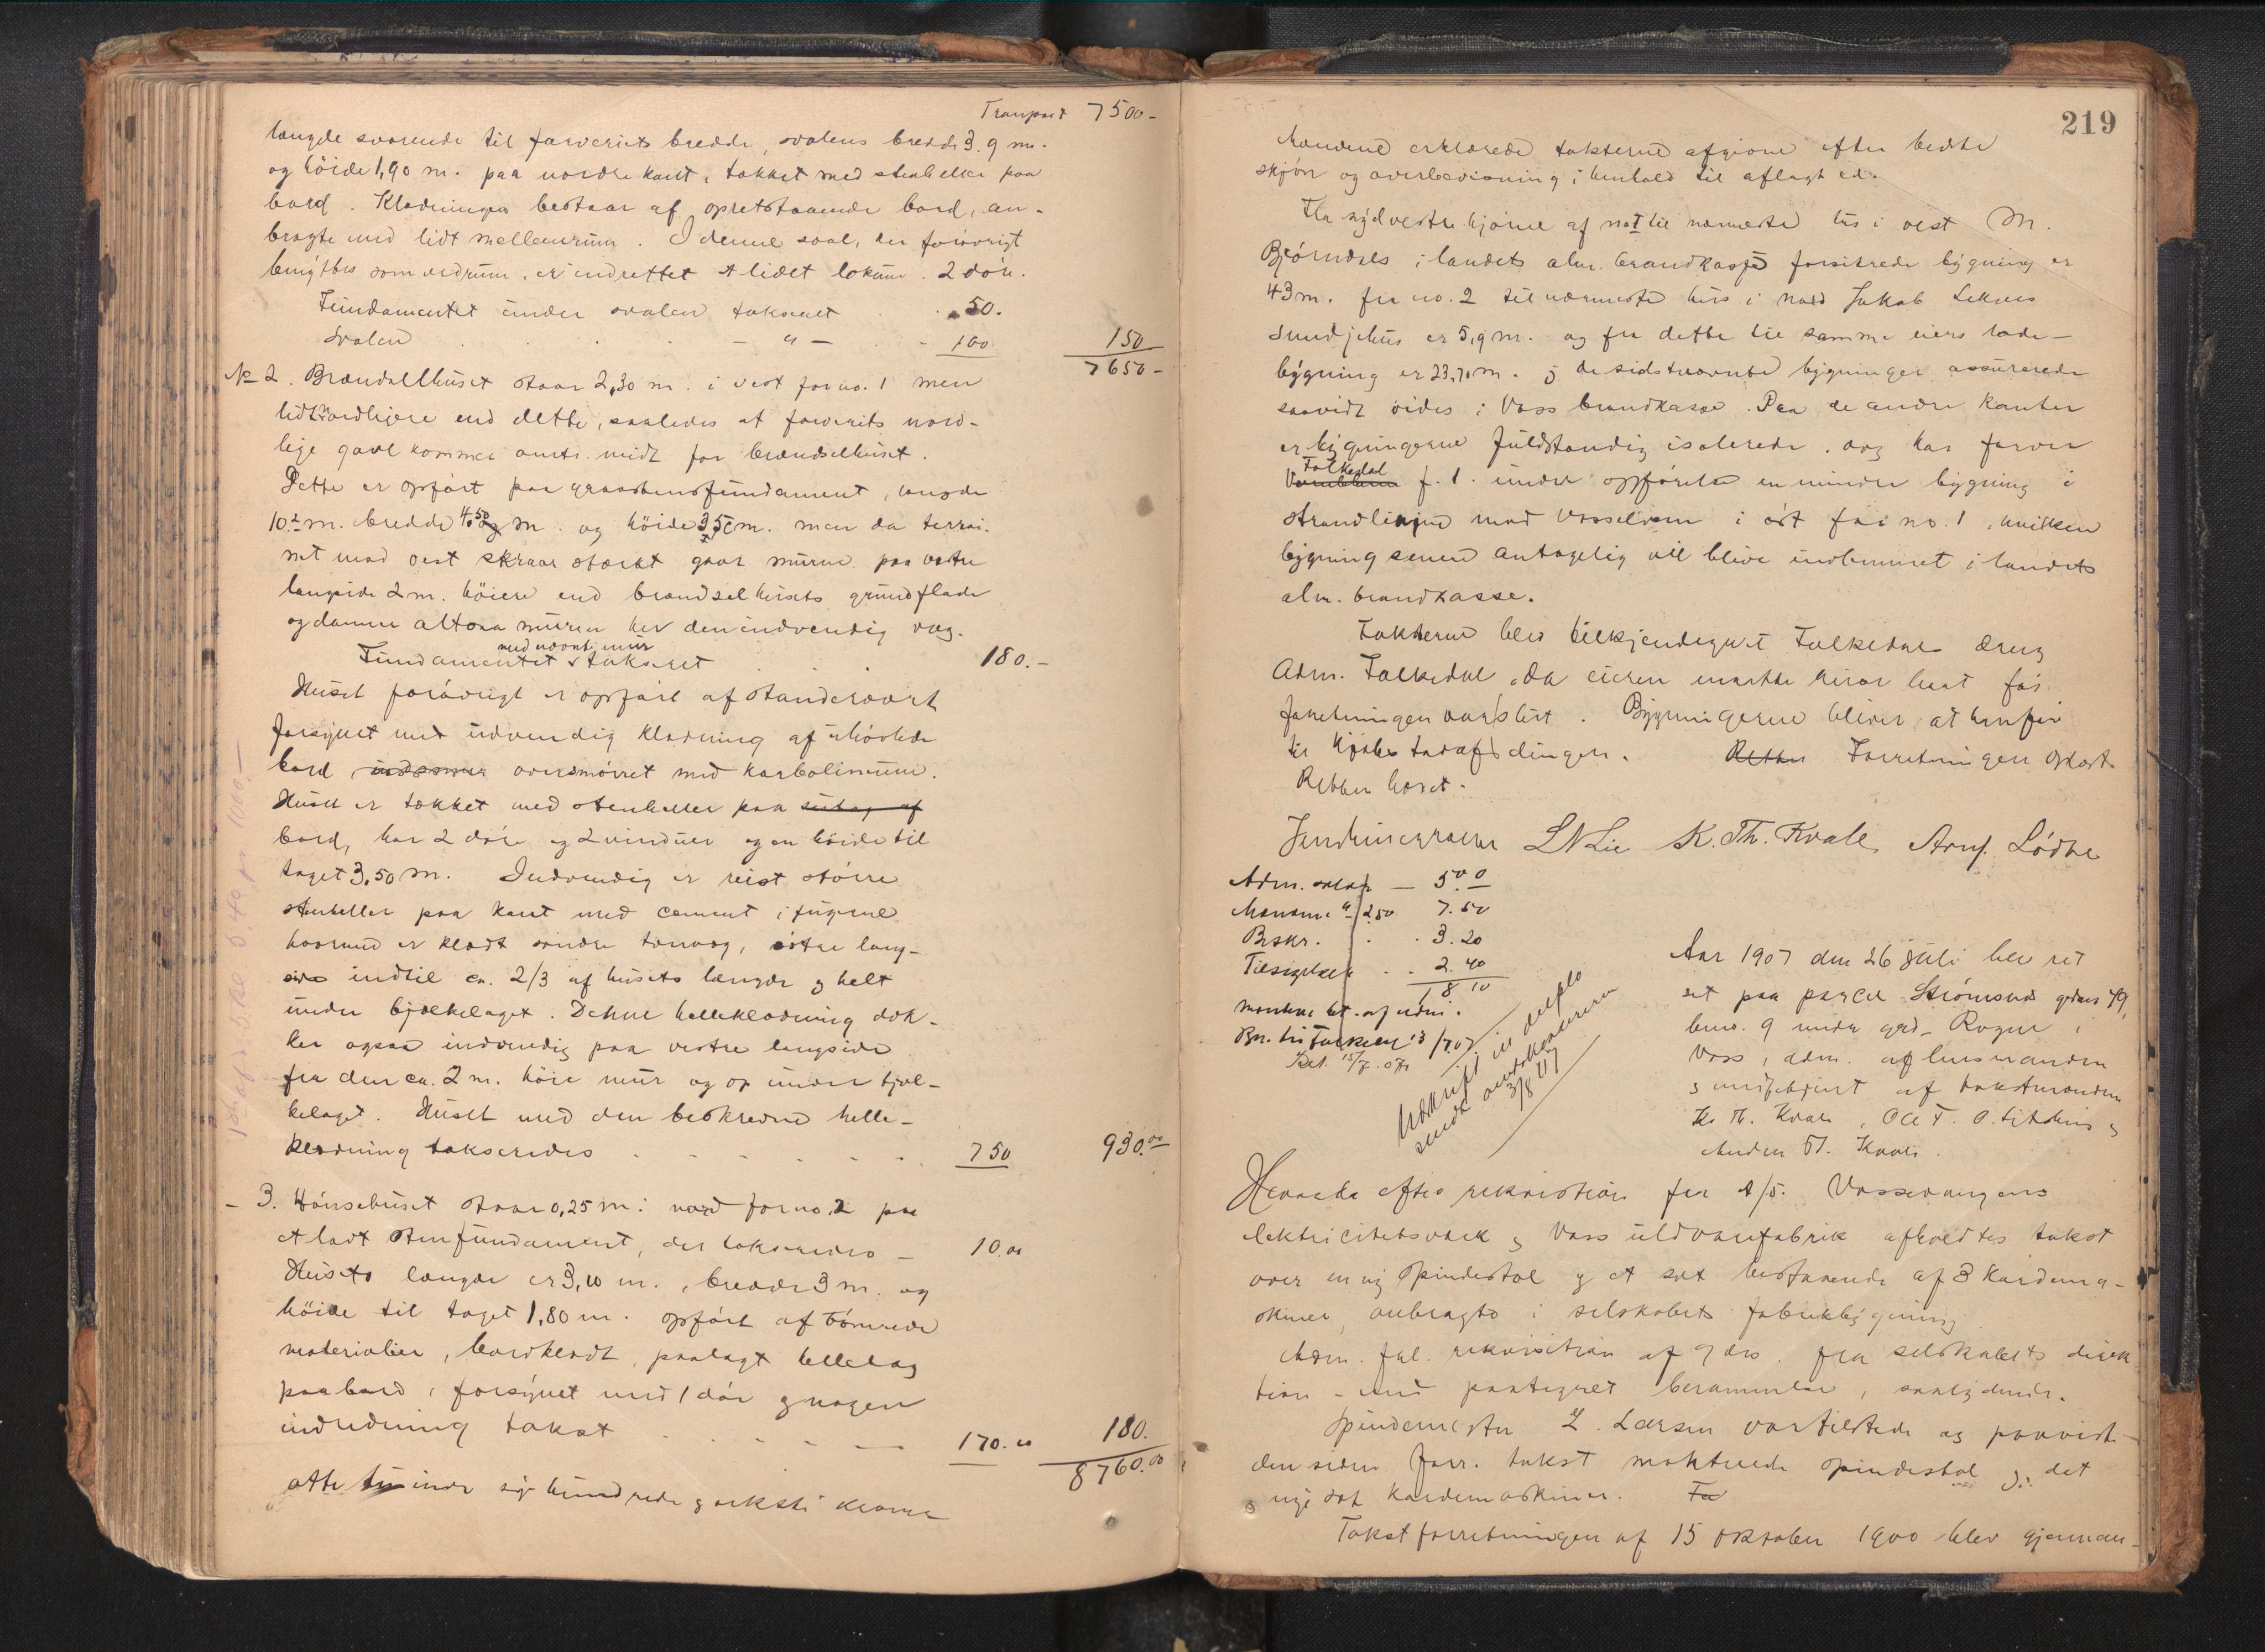 Transport 7500 -
længde svarende til farveriets bredde, svalens bredde 3.9 m.
og höide 1,90 m. paa nordre kant, tækket med stenheller paa
bord. Klædningen bestaar af opretstaaende bord, an-
bragte med lidt mellemrum. I denne sval, der forövrigt
benyttes som vedrum, er indrettet et lidet lokum. 2 dör.
Fundamentet under svalen takseret 50.
Svalen - " - 100 150
7650 -
No 2. Brændselhuset staar 2,30 m. i vest for no. 1 men
lidt nordligere end dette, saaledes at farveriets nord-
lige gavl kommer omtr. midt for brændselhuset.
Dette er opfört paa graastensfundament, længde
10.2 m. bredde 4.50 m. og höide m. men da terræi-
net mod vest skraar stærkt gaar muren paa vestre
langside 2 m. höiere end brændselhusets grundflade
og danner altsaa muren her den indvendig væg.
med nævnt mur
Fundamentet takseret 180.-
Huset forövrigt er opfört af standerværk
forsynet med udvendig klædning af uhövlede
bord, oversmörret med karbolineum.
Huset er tækket med stenheller paa
bord, har 2 döre og 2 vinduer og en höide til
taget 3,50 m. Indvendig er reist större
stenheller paa kant med cement i fugerne
hvormed er klædt söndre tværvæg, östre lang-
side indtil ca. 2/3 af husets længde og helt
under bjælkelaget. Denne helleklædning dæk-
ker ogsaa indvendig paa vestre langside
fra den ca. 2 m. höie mur og op under bjæl-
kelaget. Huset med den beskrevne helle-
klædning takseredes 750 930.00
- 3. Hönsehuset staar 0,25 m. i nord for no. 2 paa
et lavt stenfundament, der takseredes - 10.00
Husets længde er 3,10 m., bredde 3 m. og
höide til taget 1,80 m. opfört af tömrede
materialier, bordklædt, paalagt helletag
paa bord, forsynet med 1 dör og nogen
indredning takst 170.00 180.
8760.00
otte tusinde syv hundrede og seksti kroner
219
Mændene erklærede taksterne afgivne efter bedste
skjön og overbevisning i henhold til aflagt ed.
Fra sydvestre hjörne af no 1 til nærmeste hus i vest M.
Björndals i landets alm. brandkasse forsikrede bygning er
43 m. fra no. 2 til nærmeste hus i nord Jakob Lekves
smidjehus er 5,9 m. og fra dette til samme eiers lade-
bygning er 23,70 m. og de sidstnævnte bygninger assurerede
saavidt vides i Voss brandkasse. Paa de andre kanter
er bygningerne fuldstændig isolerede. dog har farver
Folkedal
f. t. under opförelse en mindre bygning i
strandlinjen mod Vosselven i öst for no. 1, hvilken
bygning senere antagelig vil blive indlemmet i landets
alm. brandkasse.
Taksterne blev tilkjendegivet Folkedals
Adm. Folkedal, da eieren maatte reise bort för
forretningen var slut. Bygningerne bliver at henföre
til Forretningen oplæst
Retten hævet.
L N Lie K. Th. Kvale Arnf. Lödve
Adm. salær — 5.00
Mændene à 2.50 7.50
Beskr. 3.20
Tilsigelse 2.40
18 10
Mændene bet. af adm.
Bet. 15/7. 07
3/8 07
Aar 1907 den 26 juli blev ret
sat paa parcel Strömsnes gaards 49,
brno. 9 under grd. Rogne i
Voss, adm. af lensmanden
og medbetjent af takstmændene
K. Th. Kvale, Ole T. O. og
Anders Kvale.
Hernede efter rekvisition fra A/S. Vossevangens
elektricitetsværk og Voss uldvarefabrik afholdtes takst
over en ny spindestol og et sæt bestaaende af 3 kardema-
skiner, anbragte i selskabets fabrikbygning
Adm. frl. rekvisition af 9 ds. fra selskabets direk-
tion - med paategnet berammelse, saalydende.
Spindemester L. Larsen var tilstede og paaviste
den siden forr. takst spindestol og det
nye sæt kardemaskiner.
Takstforretningen af 15 oktober 1900 blev gjennem-